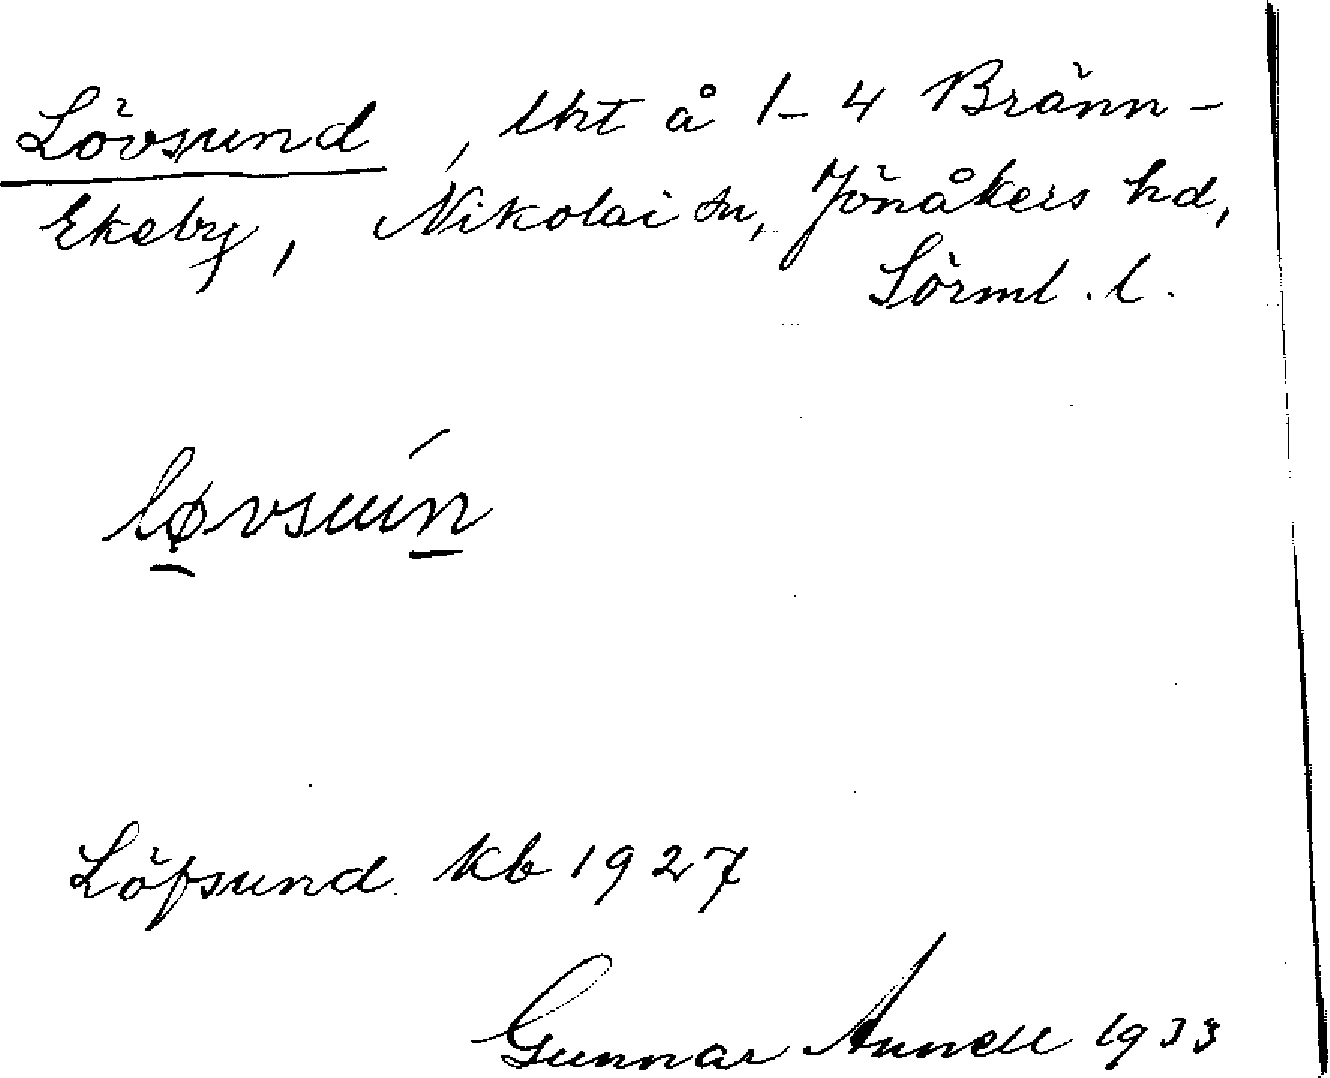 Lövsund, lht å 1–4 Bränn-
Ekeby, Nikolai sn, Jönåkers hd,
Sörml. l.
løvsuń
Löfsund. kb 1927
Gunnar Annell 1933